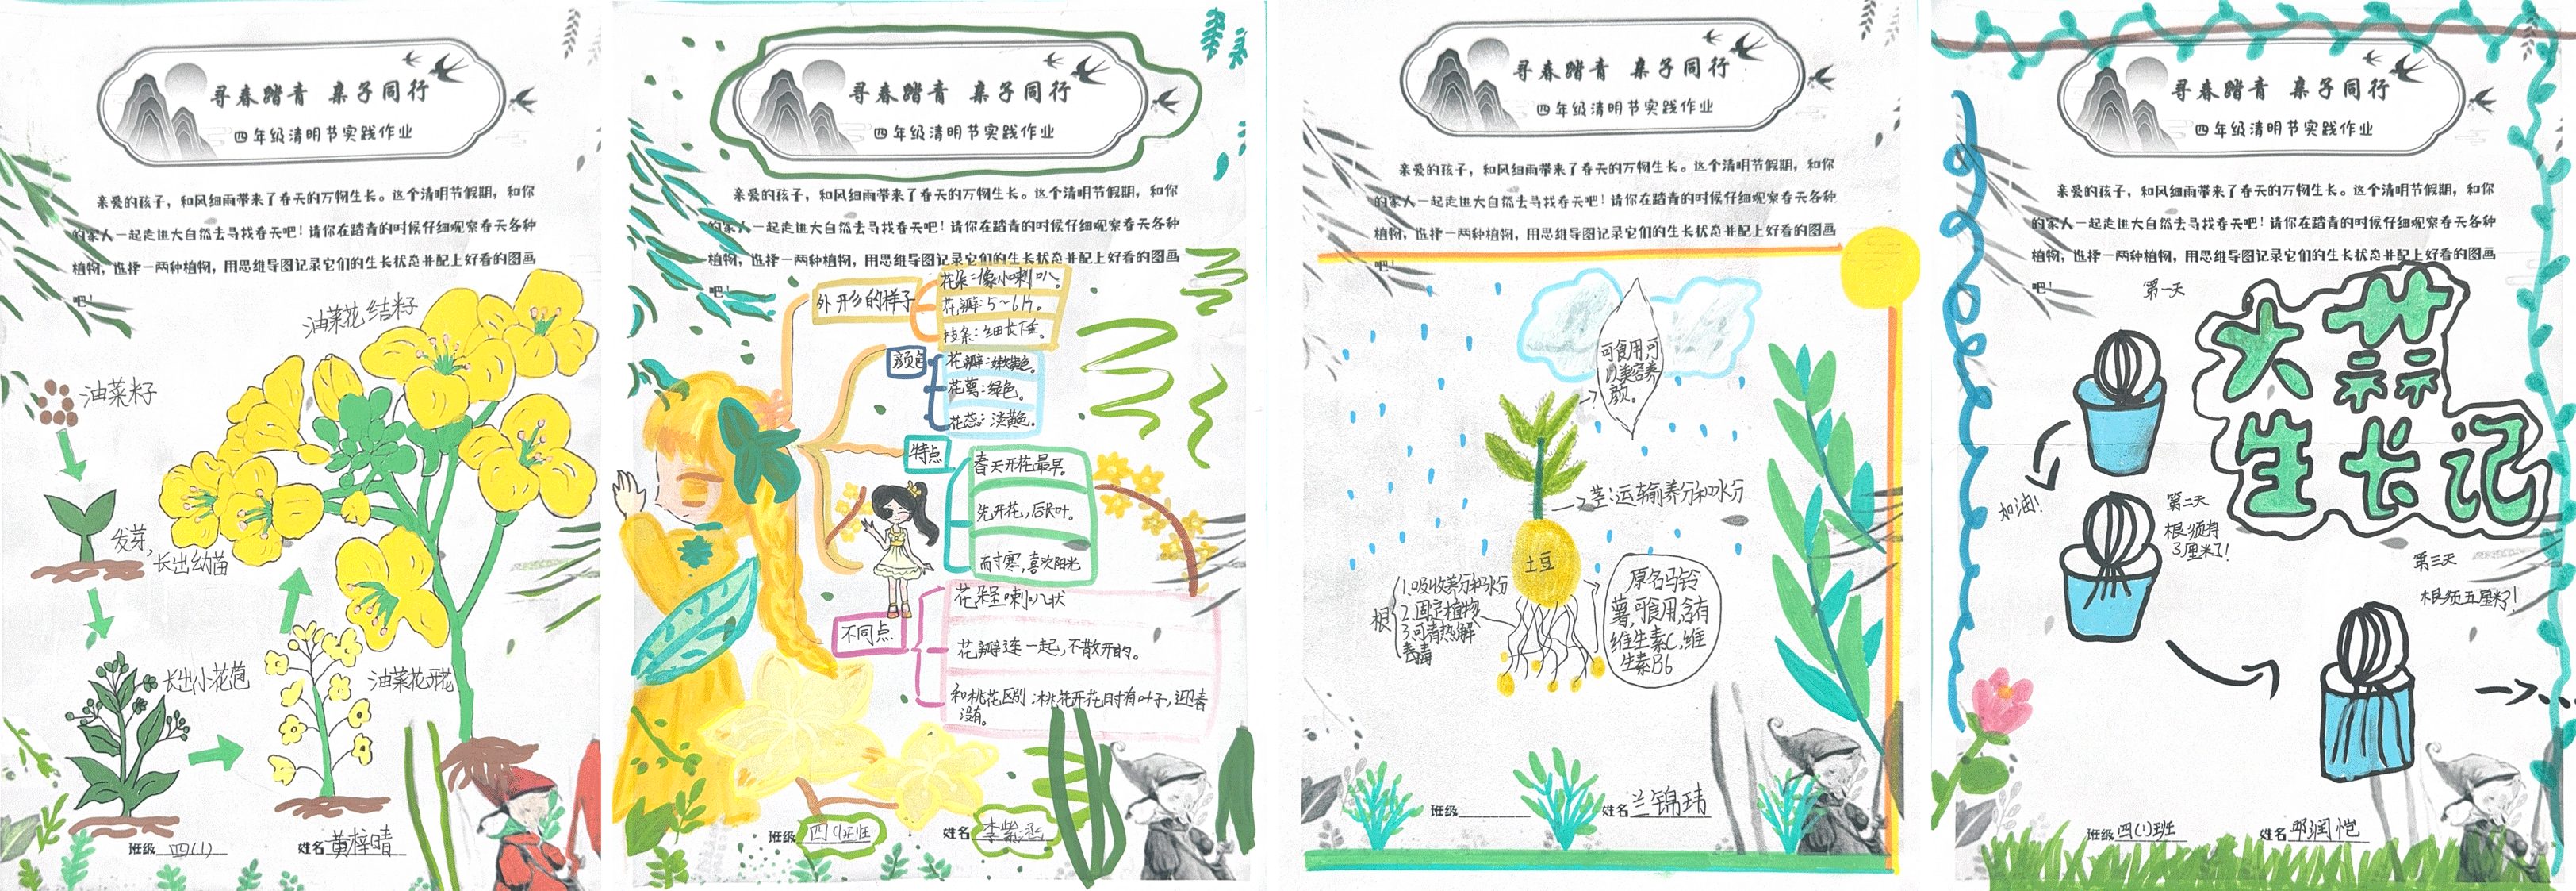 寻春踏青 亲子同行
四年级清明节实践作业
亲爱的孩子，和风细雨带来了春天的万物生长。这个清明节假期，和你
的家人一起走进大自然去寻找春天吧！请你在踏青的时候仔细观察春天各种
植物，选择一两种植物，用思维导图记录它们的生长状态并配上好看的图画
吧！
油菜花结籽
油菜籽
发芽，
长出幼苗
长出小花苞
油菜花开花
班级 四(1)
姓名 黄梓晴
寻春踏青 亲子同行
四年级清明节实践作业
亲爱的孩子，和风细雨带来了春天的万物生长。这个清明节假期，和你
的家人一起走进大自然去寻找春天吧！请你在踏青的时候仔细观察春天各种
植物，选择一两种植物，用思维导图记录它们的生长状态并配上好看的图画
吧！
外形的样子
花朵：像小喇叭。
花瓣：5~6片。
枝条：细长下垂。
颜色
花瓣：嫩黄色。
花萼：绿色。
花蕊：淡黄色。
特点
春天开花最早。
先开花，后长叶。
耐寒，喜欢阳光
不同点
花朵呈喇叭状
花瓣连一起，不散开的。
和桃花区别：桃花开花时有叶子，迎春
没有。
班级 四(1)班
姓名 李紫涵
寻春踏青 亲子同行
四年级清明节实践作业
亲爱的孩子，和风细雨带来了春天的万物生长。这个清明节假期，和你
的家人一起走进大自然去寻找春天吧！请你在踏青的时候仔细观察春天各种
植物，选择一两种植物，用思维导图记录它们的生长状态并配上好看的图画
吧！
可食用，可
以美容养
颜。
茎：运输养分和水分
土豆
根
1.吸收养分和水分
2.固定植物
3.可清热解
毒
原名马铃
薯，可食用，含有
维生素C，维
生素B6
班级
姓名 兰锦玮
寻春踏青 亲子同行
四年级清明节实践作业
亲爱的孩子，和风细雨带来了春天的万物生长。这个清明节假期，和你
的家人一起走进大自然去寻找春天吧！请你在踏青的时候仔细观察春天各种
植物，选择一两种植物，用思维导图记录它们的生长状态并配上好看的图画
吧！
第一天
大蒜
生长记
加油！
第二天
根须有
3厘米了！
第三天
根须五厘米了！
班级 四(1)班
姓名 邓润恺